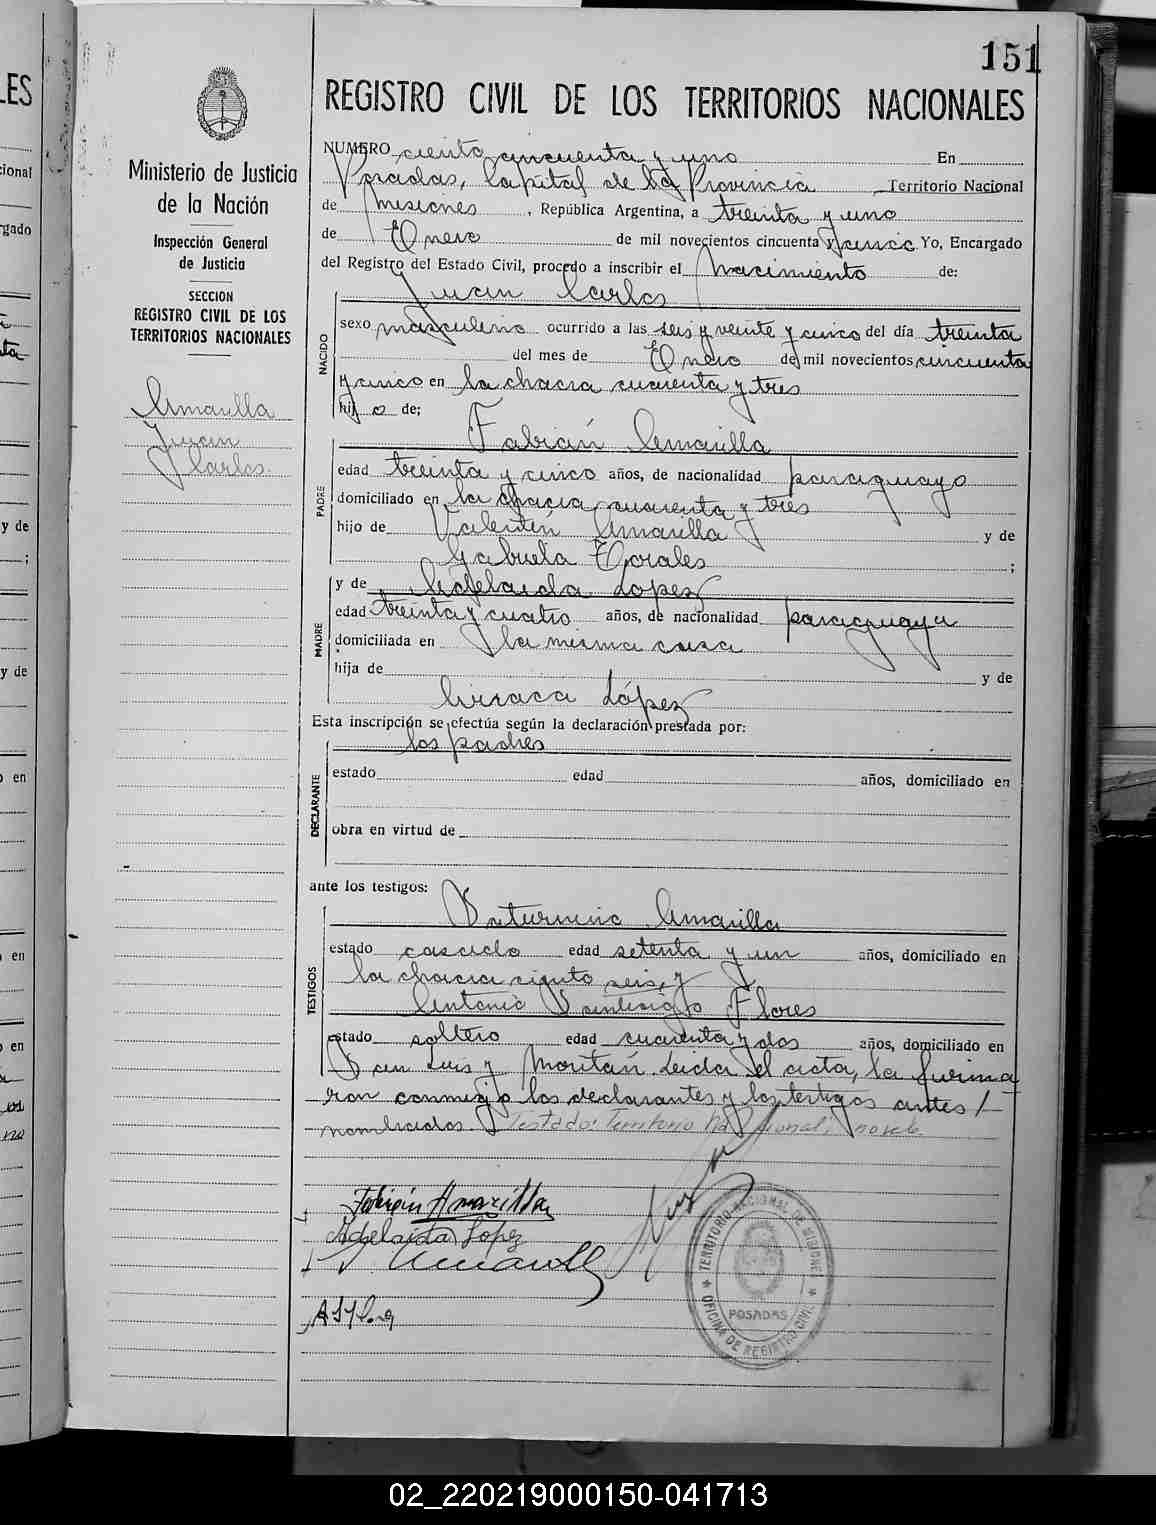 151
REGISTRO CIVIL DE LOS TERRITORIOS NACIONALES
Ministerio de Justicia
de la Nación
Inspección General
de Justicia
SECCION
REGISTRO CIVIL DE LOS
TERRITORIOS NACIONALES
Amarilla
Juan
Carlos.
NUMERO ciento cincuenta y uno En
Posadas, Capital de la Provincia Territorio Nacional
de Misiones, República Argentina, a treinta y uno
de Enero de mil novecientos cincuenta y cinco Yo, Encargado
del Registro del Estado Civil, procedo a inscribir el Nacimiento de:
Juan Carlos
NACIDO
sexo masculino ocurrido a las seis y veinte y cinco del día treinta
del mes de Enero de mil novecientos cincuenta
y cinco en la chacra cuarenta y tres
hijo de;
Fabián Amarilla
PADRE
edad treinta y cinco años, de nacionalidad paraguayo
domiciliado en la chacra cuarenta y tres
hijo de Valentín Amarilla y de
Gabriela Torales ;
y de Adelaida Lopez
MADRE
edad treinta y cuatro años, de nacionalidad paraguaya
domiciliada en la misma casa
hija de y de
Ciriaca López
Esta inscripción se efectúa según la declaración prestada por:
los padres
DECLARANTE
estado edad años, domiciliado en
obra en virtud de
ante los testigos:
Saturnino Amarilla
TESTIGOS
estado casado edad setenta y un años, domiciliado en
la chacra ciento seis, y
Antonio Santiago Flores
estado soltero edad cuarenta y dos años, domiciliado en
San Luis y Moritán. Leida el acta, la firma
ron conmigo los declarantes y los testigos antes
nombrados. Testado: Territorio Nacional,
Fabián Amarilla
Adelaida Lopez
TERRITORIO NACIONAL DE MISIONES
POSADAS
OFICINA DE REGISTRO CIVIL
02_220219000150-041713